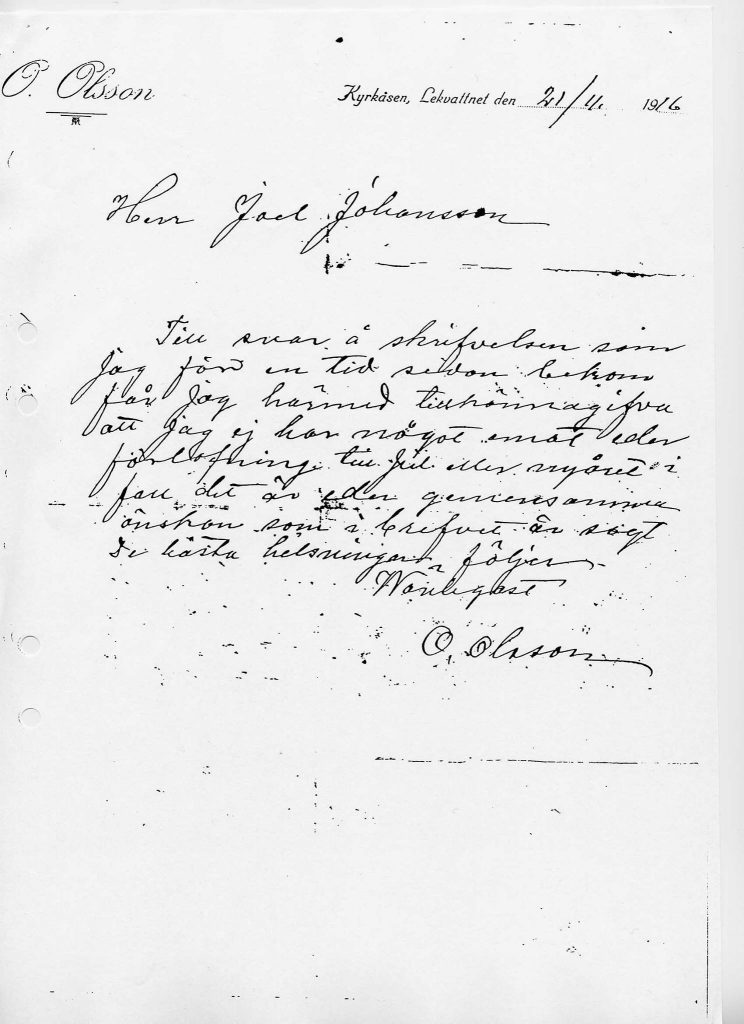 O. Olsson
Kyrkåsen, Lekvattnet den 21/4. 1916
Herr Joel Johansson
Till svar å skrifvelsen som
jag för en tid sedan bekom
får jag härmed tillkännagifva
att jag ej har något emot eder
förlofning till jul eller nyåret i
fall det är eder gemensamma
önskan som i brefvet är sagt
De bästa helsningar följer
Vänligast
O. Olsson